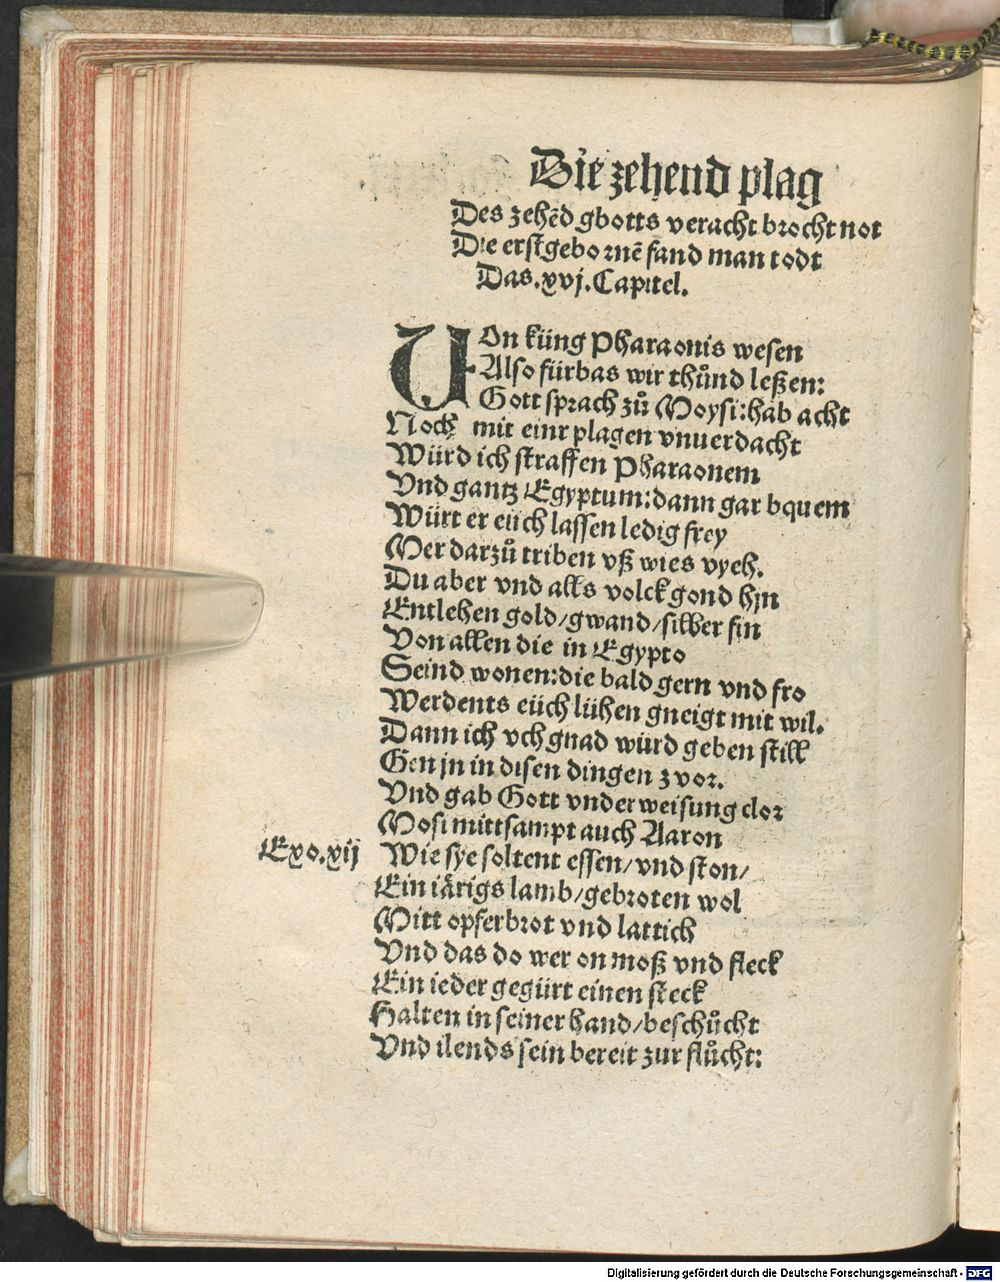 Die zehend plag
Des zehēd gbotts veracht brocht not
Die erstgebornē fand man todt
Das.xvj.Capitel.
VOn küng Pharaonis wesen
Also fürbas wir thůnd leßen:
Gott sprach zů Moysi:hab acht
Noch mit einr plagen vnuerdacht
Würd ich straffen Pharaonem
Vnd gantz Egyptum:dann gar bquem
Würt er eüch lassen ledig frey
Mer darzů triben vß wies vyeh.
Du aber vnd alls volck gond hjn
Entlehen gold/gwand/silber fin
Von allen die in Egypto
Seind wonen:die bald gern vnd fro
Werdents eüch lühen gneigt mit wil.
Dann ich vch gnad würd geben still
Gen jn in disen dingen zvor.
Vnd gab Gott vnderweisung clor
Mosi mittsampt auch Aaron
Exo.xij Wie sye soltent essen/vnd ston/
Ein iärigs lamb/gebroten wol
Mitt opferbrot vnd lattich
Vnd das do wer on moß vnd fleck
Ein ieder gegürt einen steck
Halten in seiner hand/beschůcht
Vnd ilends sein bereit zur flůcht:
Digitalisierung gefördert durch die Deutsche Forschungsgemeinschaft - DFG